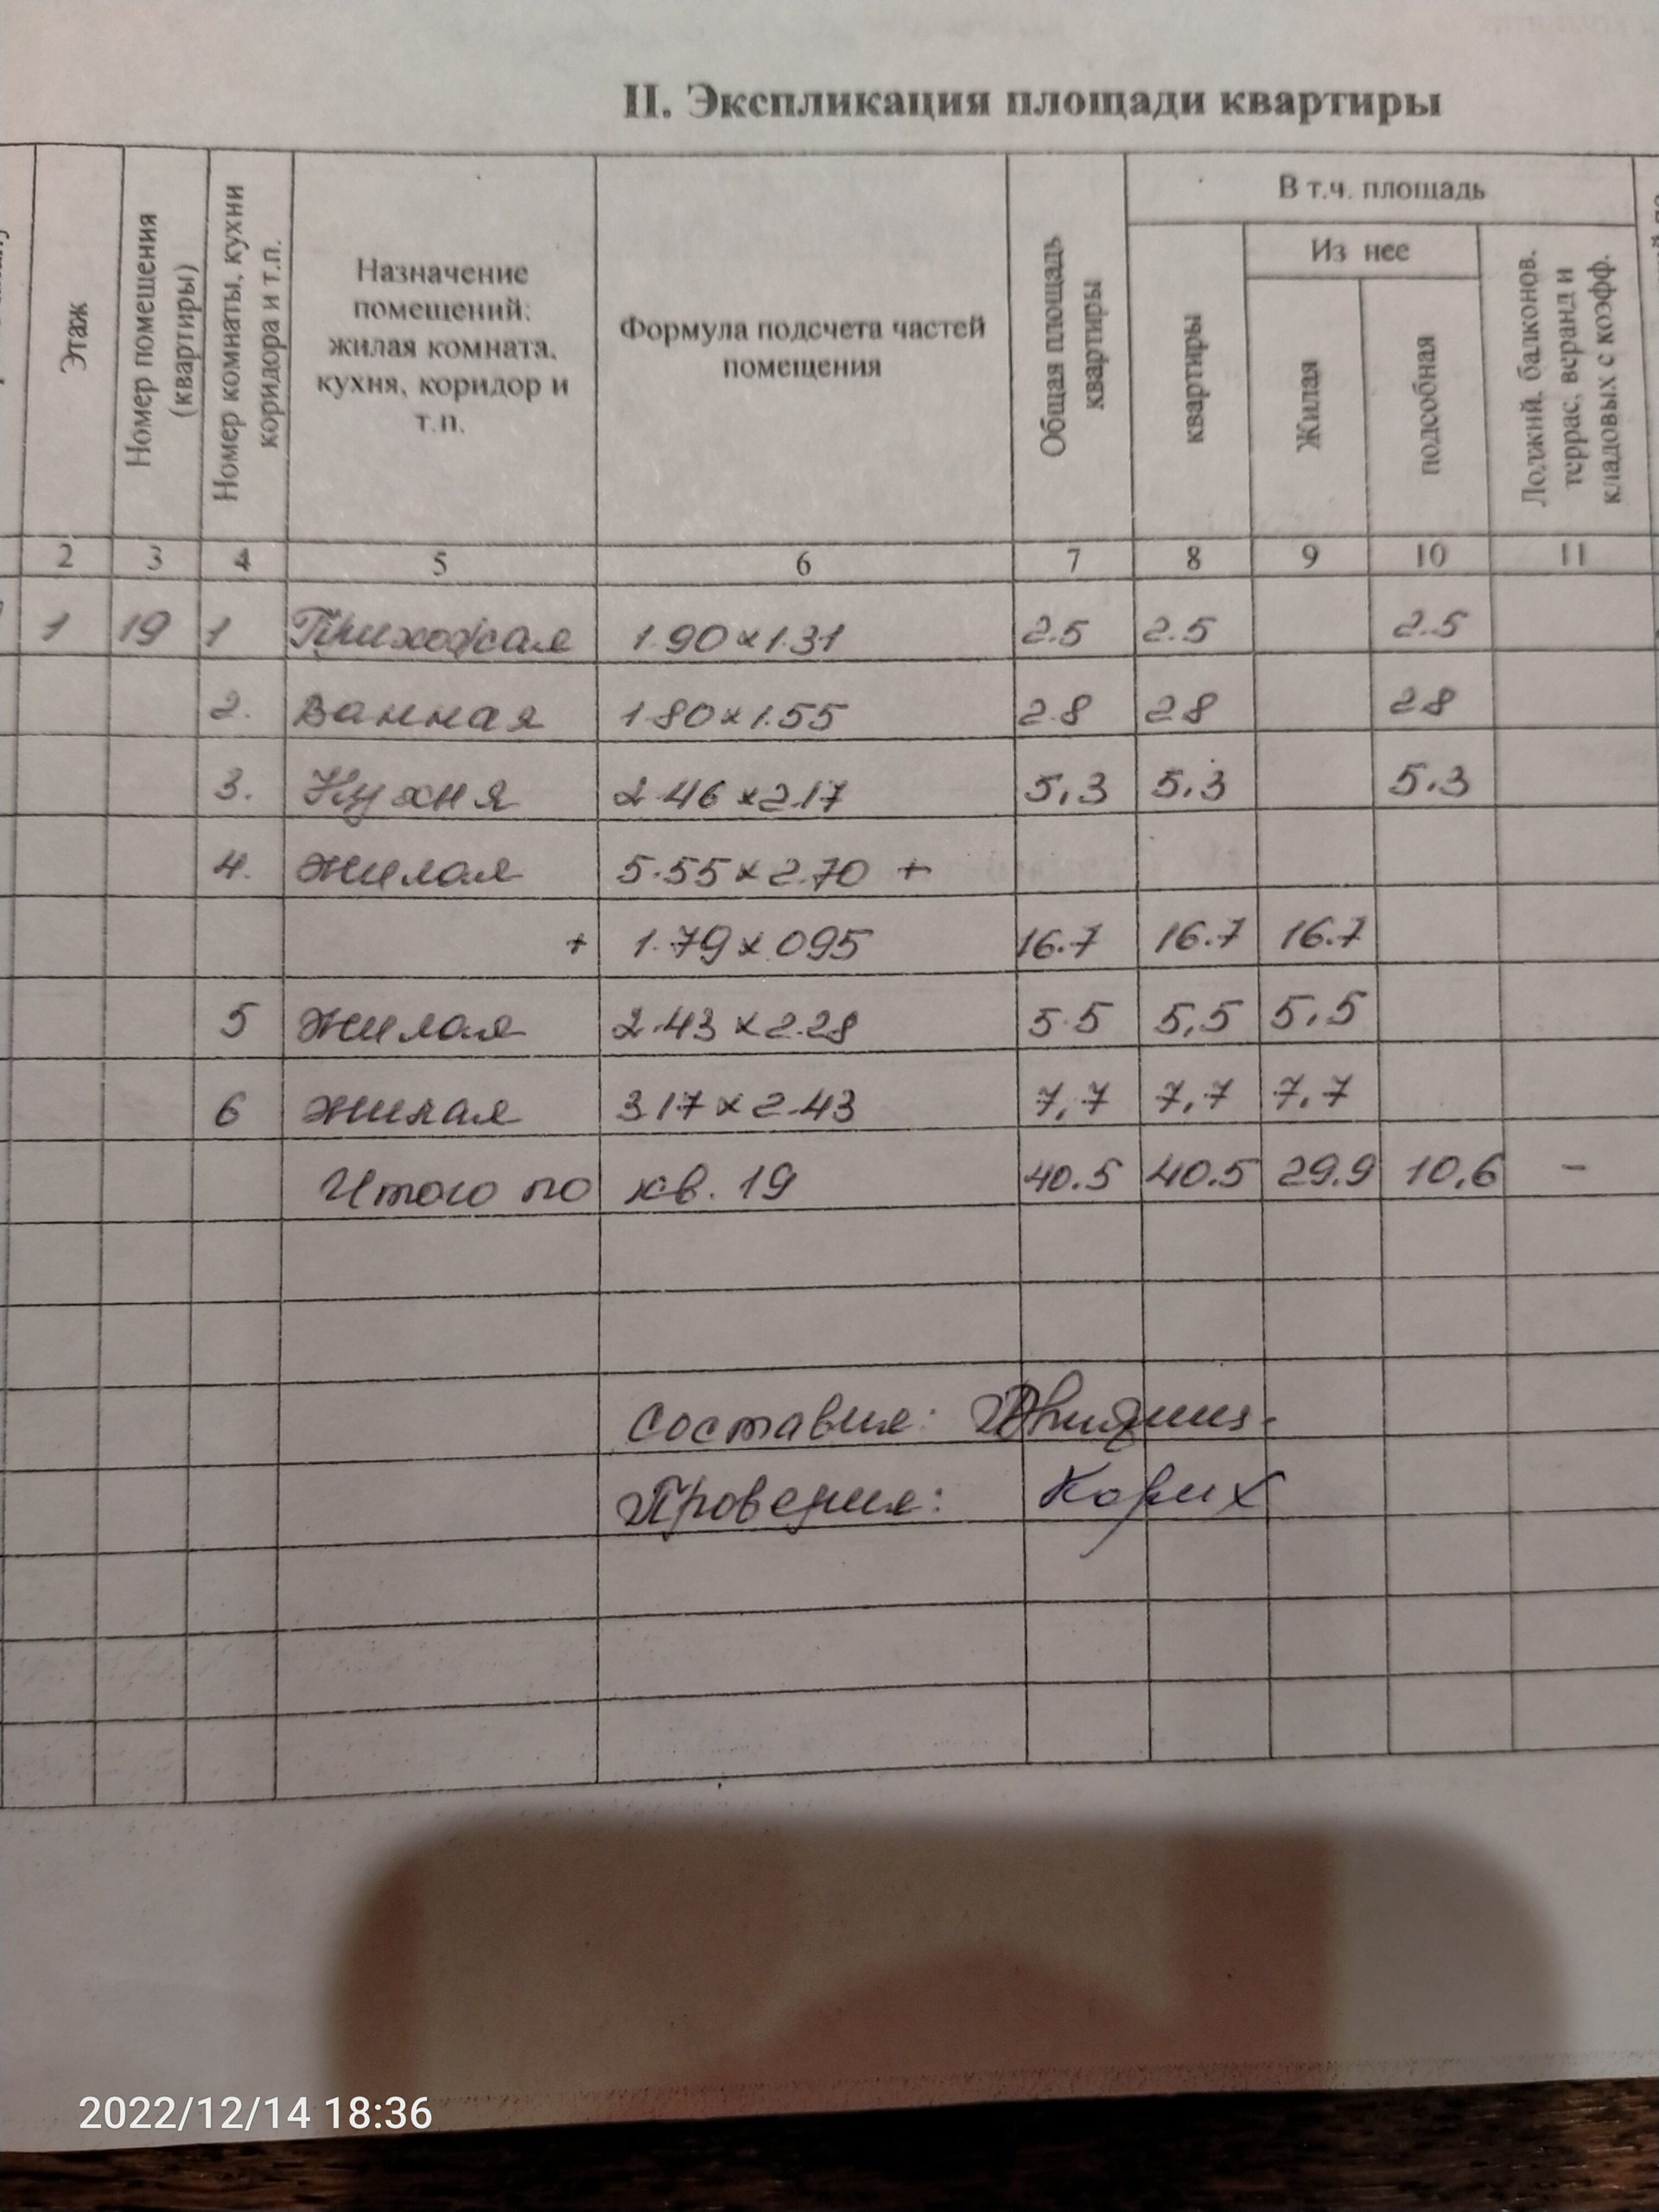 II. Экспликация площади квартиры
Этаж
Номер помещения (квартиры)
Номер комнаты, кухни коридора и т.п.
Назначение помещений: жилая комната, кухня, коридор и т.п.
Формула подсчета частей помещения
Общая площадь квартиры
В т.ч. площадь
квартиры
Из нее
Жилая
подсобная
Лоджий, балконов, террас, веранд и кладовых с коэфф.
2 3 4 5 6 7 8 9 10 11
1 19 1 Прихожая 1.90 x 1.31 2.5 2.5 2.5
2. Ванная 1.80 x 1.55 2.8 2.8 2.8
3. Кухня 2.46 x 2.17 5,3 5.3 5.3
4. Жилая 5.55 x 2.70 +
+ 1.79 x 0.95 16.7 16.7 16.7
5 Жилая 2.43 x 2.28 5.5 5,5 5,5
6 Жилая 3.17 x 2.43 7,7 7,7 7,7
Итого по кв. 19 40.5 40.5 29.9 10,6 -
Составил:
Проверил:
2022/12/14 18:36